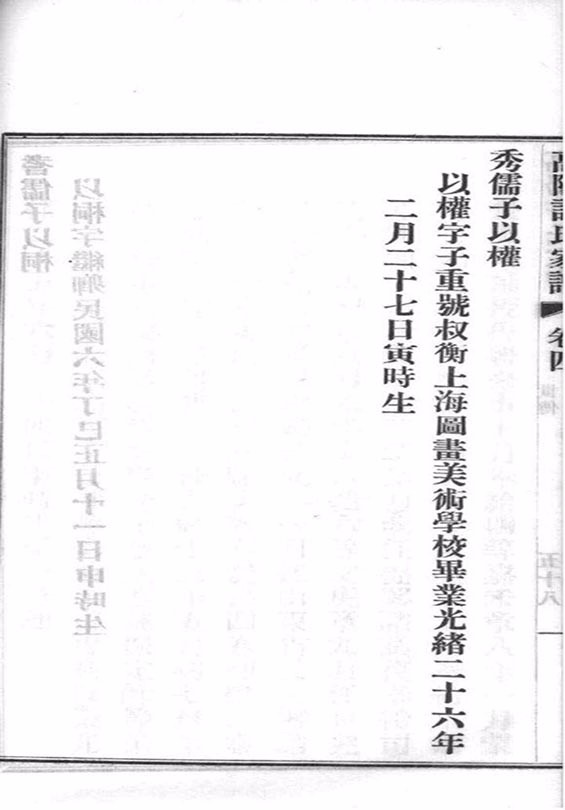 高陽許氏家譜 卷四
秀儒子以權
以權字子重號叔衡上海圖畫美術學校畢業光緒二十六年
二月二十七日寅時生